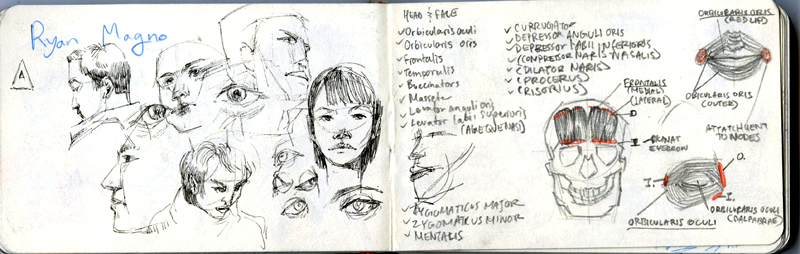 Ryan Magno
A
HEAD & FACE
Orbicularis oculi
Orbicularis oris
Frontalis
Temporalis
Buccinators
Masseter
Levator anguli oris
Levator labii superioris
ZYGOMATICUS MAJOR
ZYGOMATICUS MINOR
MENTALIS
CURRUGATOR
DEPRESSOR ANGULI ORIS
DEPRESSOR LABII INFERIORIS
(COMPRESSOR NARIS NASALIS)
(DILATOR NARIS)
(PROCERUS)
(RISORIUS)
FRONTALIS
(MEDIAL)
(LATERAL)
O
I
EYEBROW
ORBICULARIS ORIS
(RED LIP)
ORBICULARIS ORIS
(OUTER)
ATTATCHMENT
TO NODES
O.
I.
I.
ORBICULARIS OCULI
ORBICULARIS OCULI